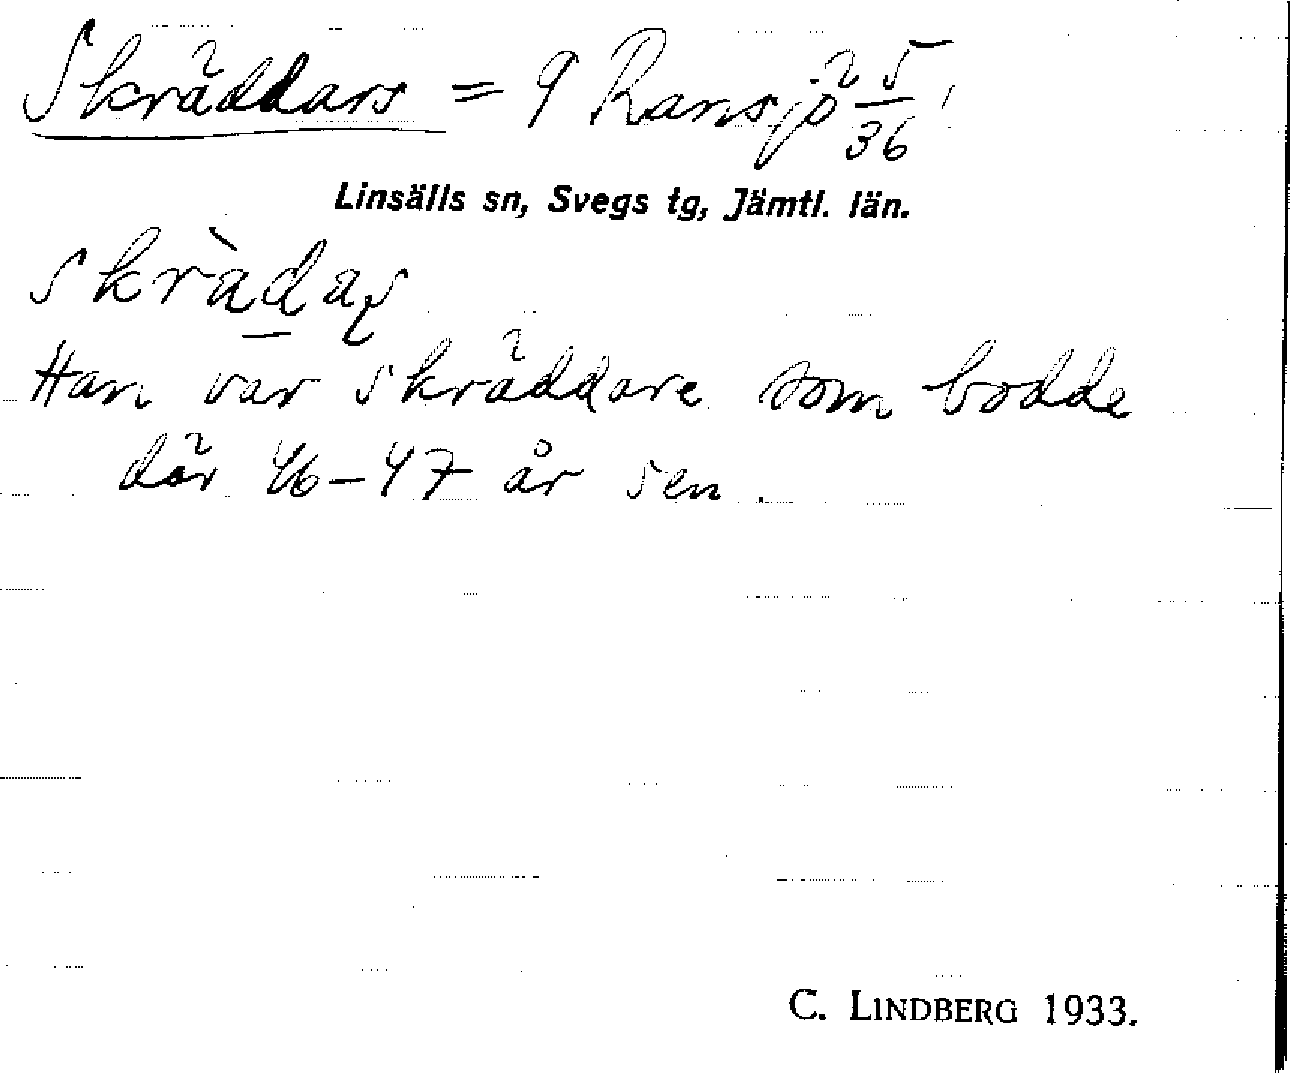 Skräddars = 9 Ransjö 5/36
Linsälls sn, Svegs tg, Jämtl. län.
skràdaș
Han var skräddare som bodde
där 46-47 år sen.
C. LINDBERG 1933.